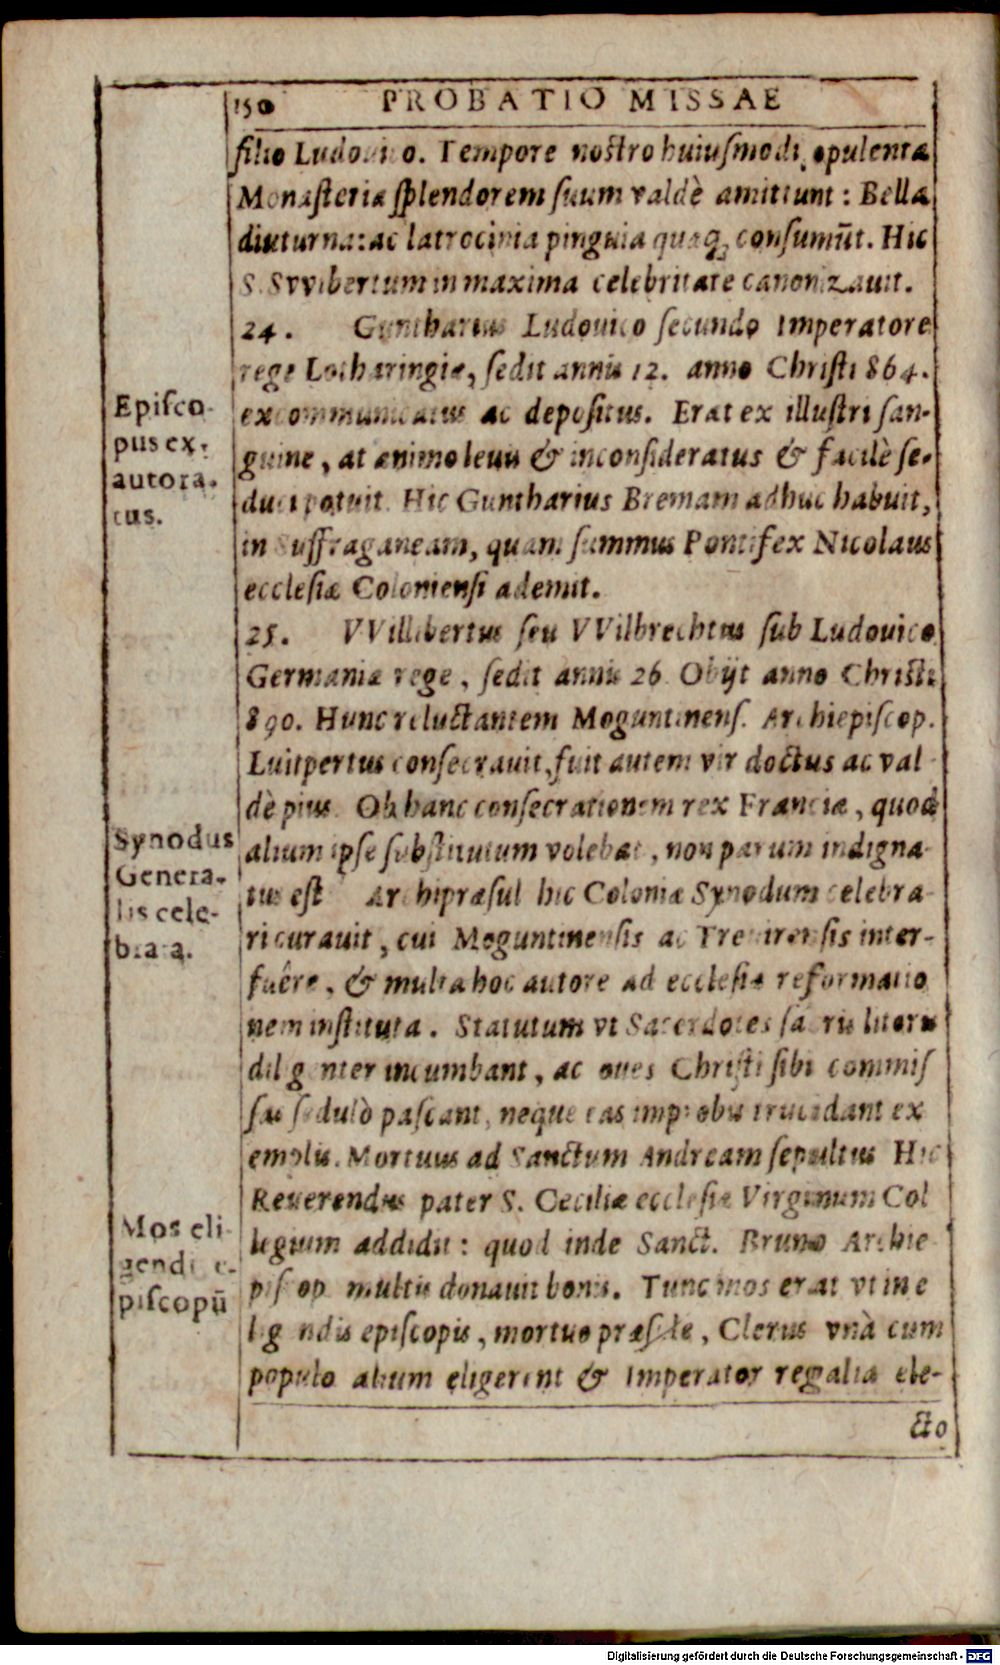 150 PROBATIO MISSAE
filio Ludouico. Tempore nostro huiuſmodi opulenta
Monaſteria ſplendorem ſuum valdè amittunt : Bella
diuturna: ac latrocinia pinguia quæq; conſumũt. Hic
S. Svvibertum in maxima celebritate canonizauit.
24. Guntharius Ludouico ſecundo Imperatore
rege Lotharingiæ, ſedit annis 12. anno Chriſti 864.
excommunicatus ac depoſitus. Erat ex illuſtri ſan-
guine, at animo leuis & inconſideratus & facilè ſe-
duci potuit. Hic Guntharius Bremam adhuc habuit,
in Suffraganeam, quam ſummus Pontifex Nicolaus
eccleſiæ Colonienſi ademit.
Epiſco-
pus ex-
autora-
tus.
25. VVillibertus ſeu VVilbrechtus ſub Ludouico
Germaniæ rege, ſedit annis 26. Obijt anno Chriſti
890. Hunc reluctantem Moguntinenſ. Archiepiſcop.
Luitpertus conſecrauit, fuit autem vir doctus ac val-
dè pius. Ob hanc conſecrationem rex Franciæ, quod
alium ipſe ſubſtitutum volebat, non parum indigna-
tus est Archipræſul hic Coloniæ Synodum celebra-
ri curauit, cui Moguntinenſis ac Treuirenſis inter-
fuêre, & multa hoc autore ad eccleſiæ reformatio
nem inſtituta. Statutum vt Sacerdotes ſacris literis
diligenter incumbant, ac oues Chriſti ſibi commiſ
ſas ſedulò paſcant, neque eas improbis trucidant ex
emplis. Mortuus ad Sanctum Andream ſepultus Hic
Reuerendus pater S. Ceciliæ eccleſiæ Virginum Col
legium addidit : quod inde Sanct. Bruno Archie
piſcop multis donauit bonis. Tunc mos erat vt in e
ligendis epiſcopis, mortuo præſide, Clerus vnà cum
populo alium eligerent & Imperator regalia ele-
Synodus
Genera-
lis cele-
brata.
Mos eli-
gendi e-
piſcopũ
cto
Digitalisierung gefördert durch die Deutsche Forschungsgemeinschaft - DFG